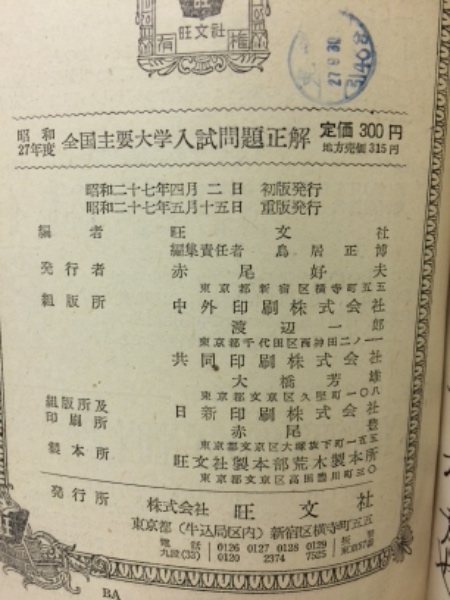 旺文社
有 権
27 6 30
昭和27年度 全国主要大学入試問題正解 定価 300円
地方売価 315円
昭和二十七年四月二日 初版発行
昭和二十七年五月十五日 重版発行
編者 旺文社
編集責任者 鳥居正博
発行者 赤尾好夫
東京都新宿区横寺町五五
組版所 中外印刷株式会社
渡辺一郎
東京都千代田区西神田二ノ一一
共同印刷株式会社
大橋芳雄
東京都文京区久堅町一〇八
組版所及印刷所 日新印刷株式会社
赤尾豊
東京都文京区大塚坂下町一五五
製本所 旺文社製本部荒木製本所
東京都文京区高田豊川町三〇
発行所 株式会社 旺文社
東京都(牛込局区内)新宿区横寺町五五
電話九段(33) 0126 0127 0128 0129 0120 2374 7525 振替東京57番
BA